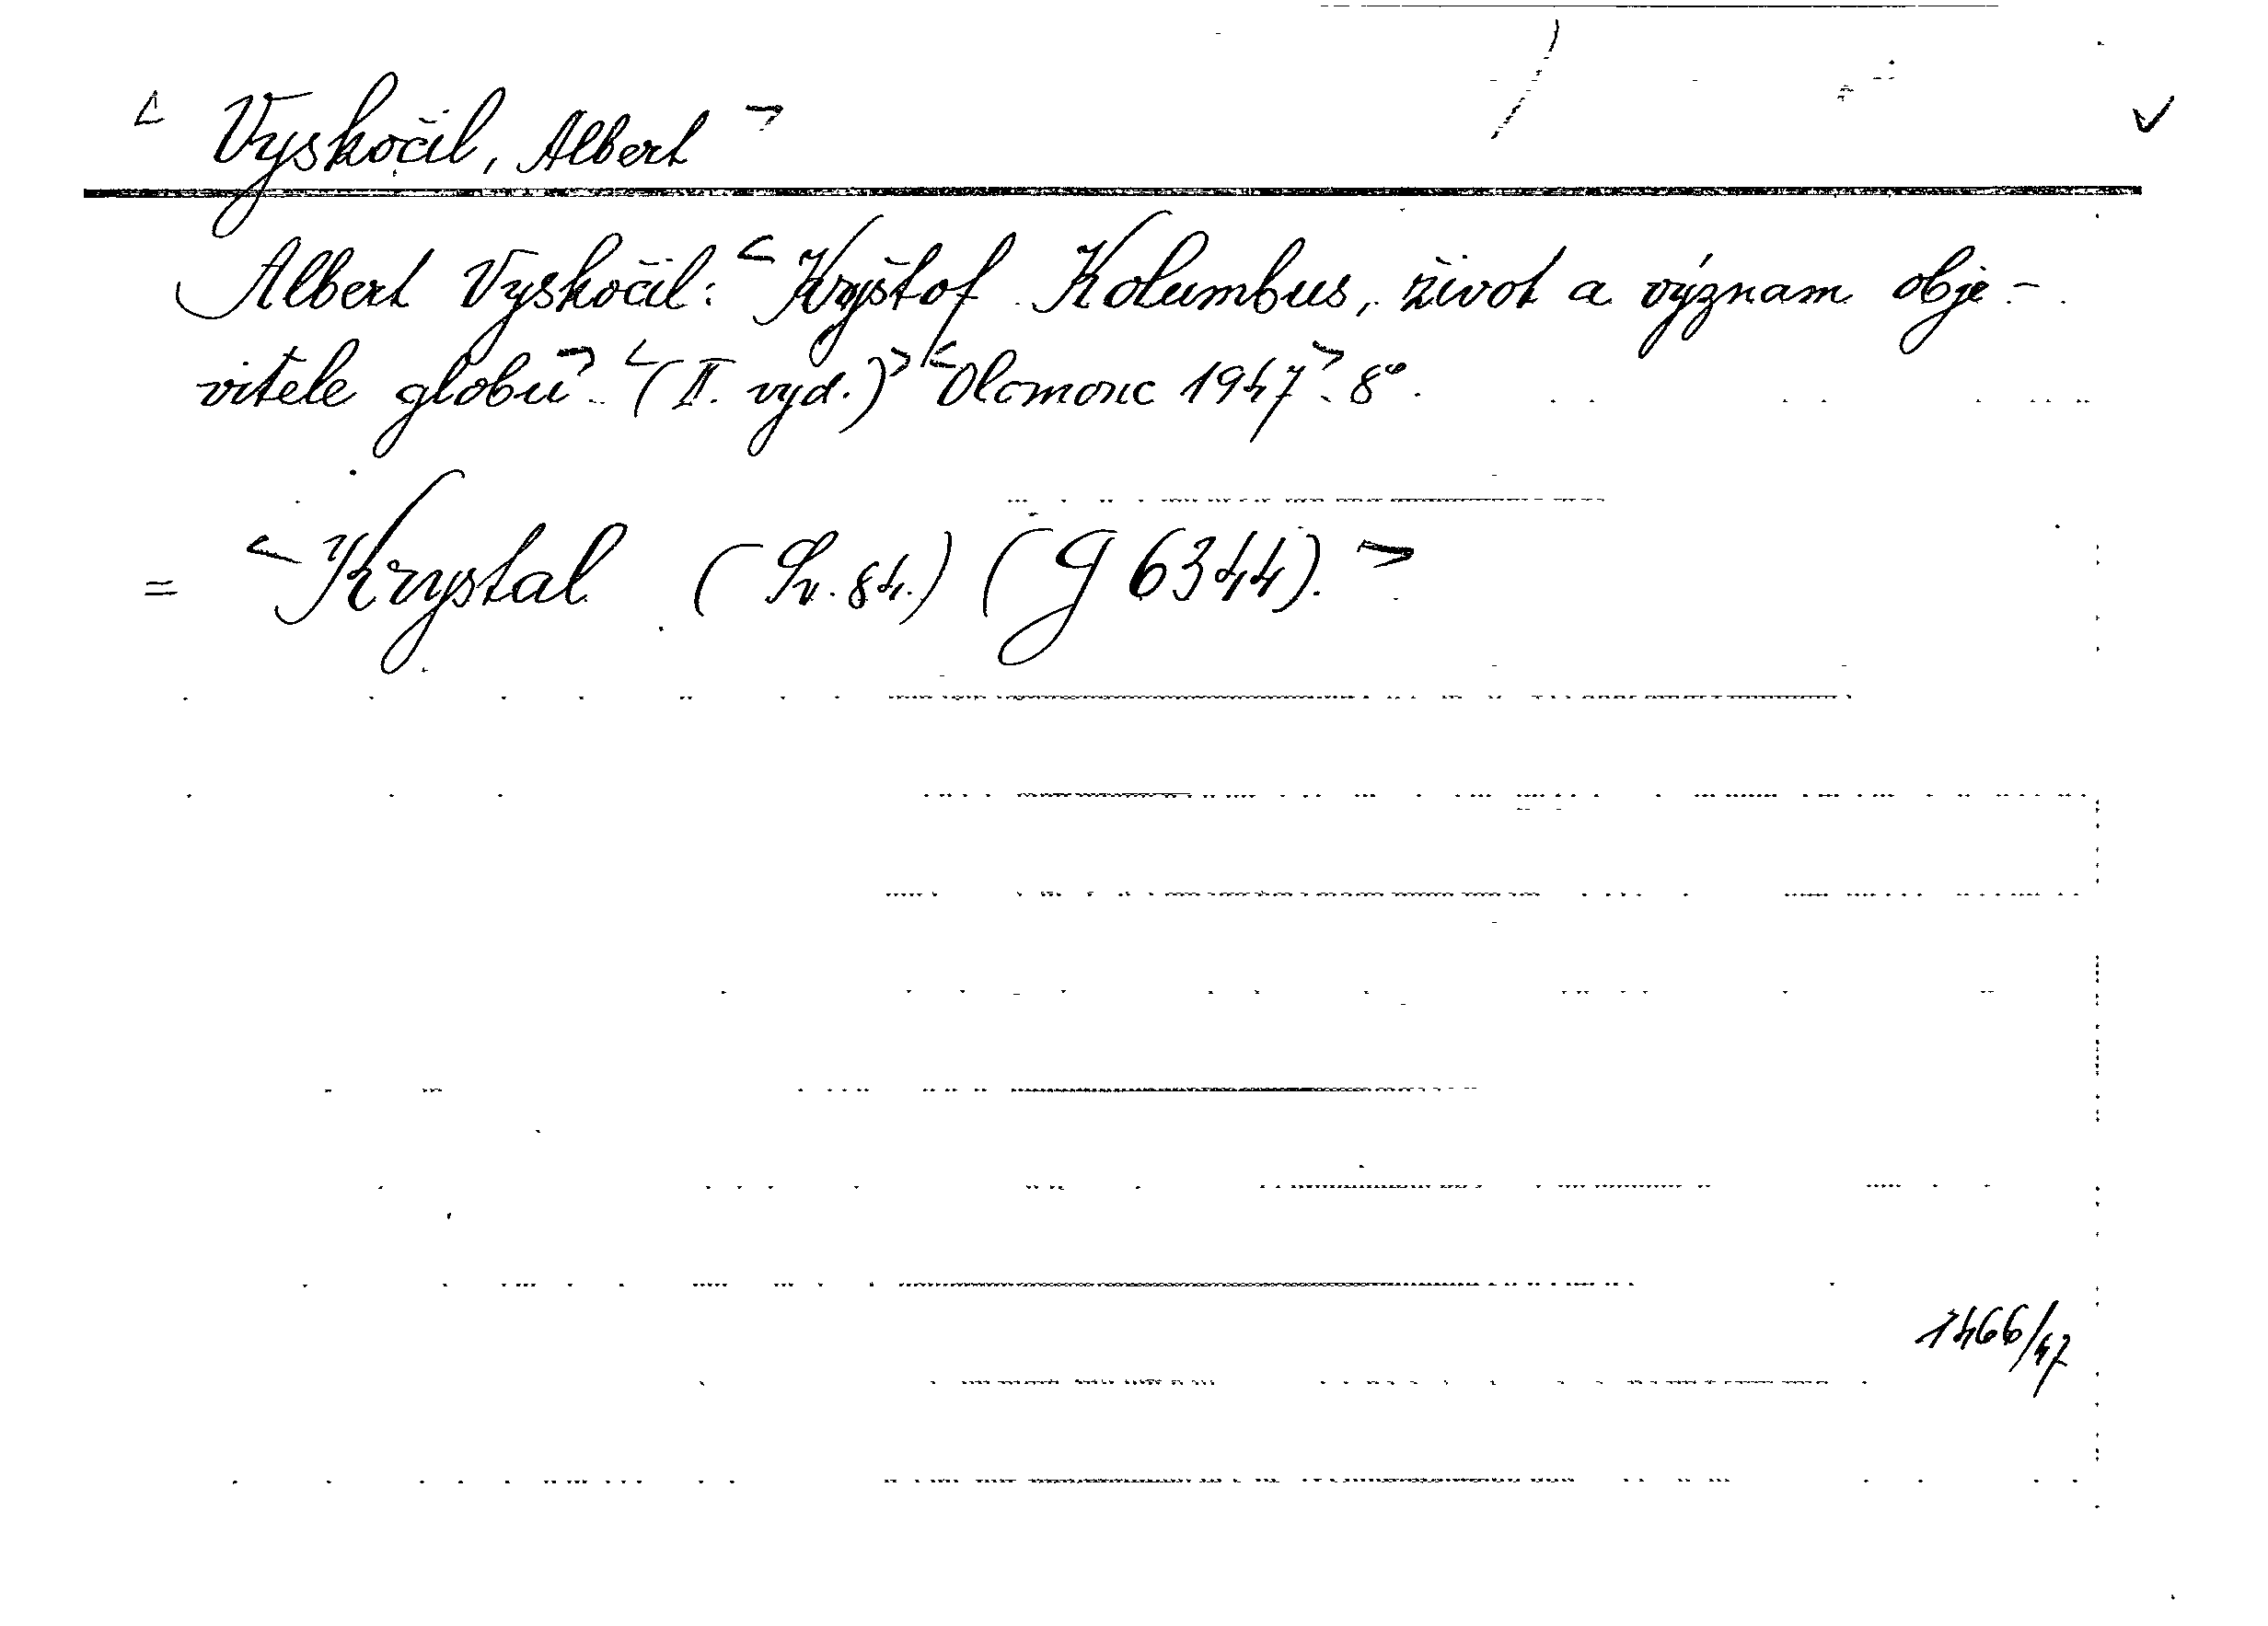 < Vyskočil, Albert > ✓
Albert Vyskočil: <Kryštof Kolumbus, život a význam obje-
vitele globu>. <(II. vyd.)> <Olomouc 1947>. 8°.
= <Krystal (Sv. 84.) (G 6344).>
1466/47